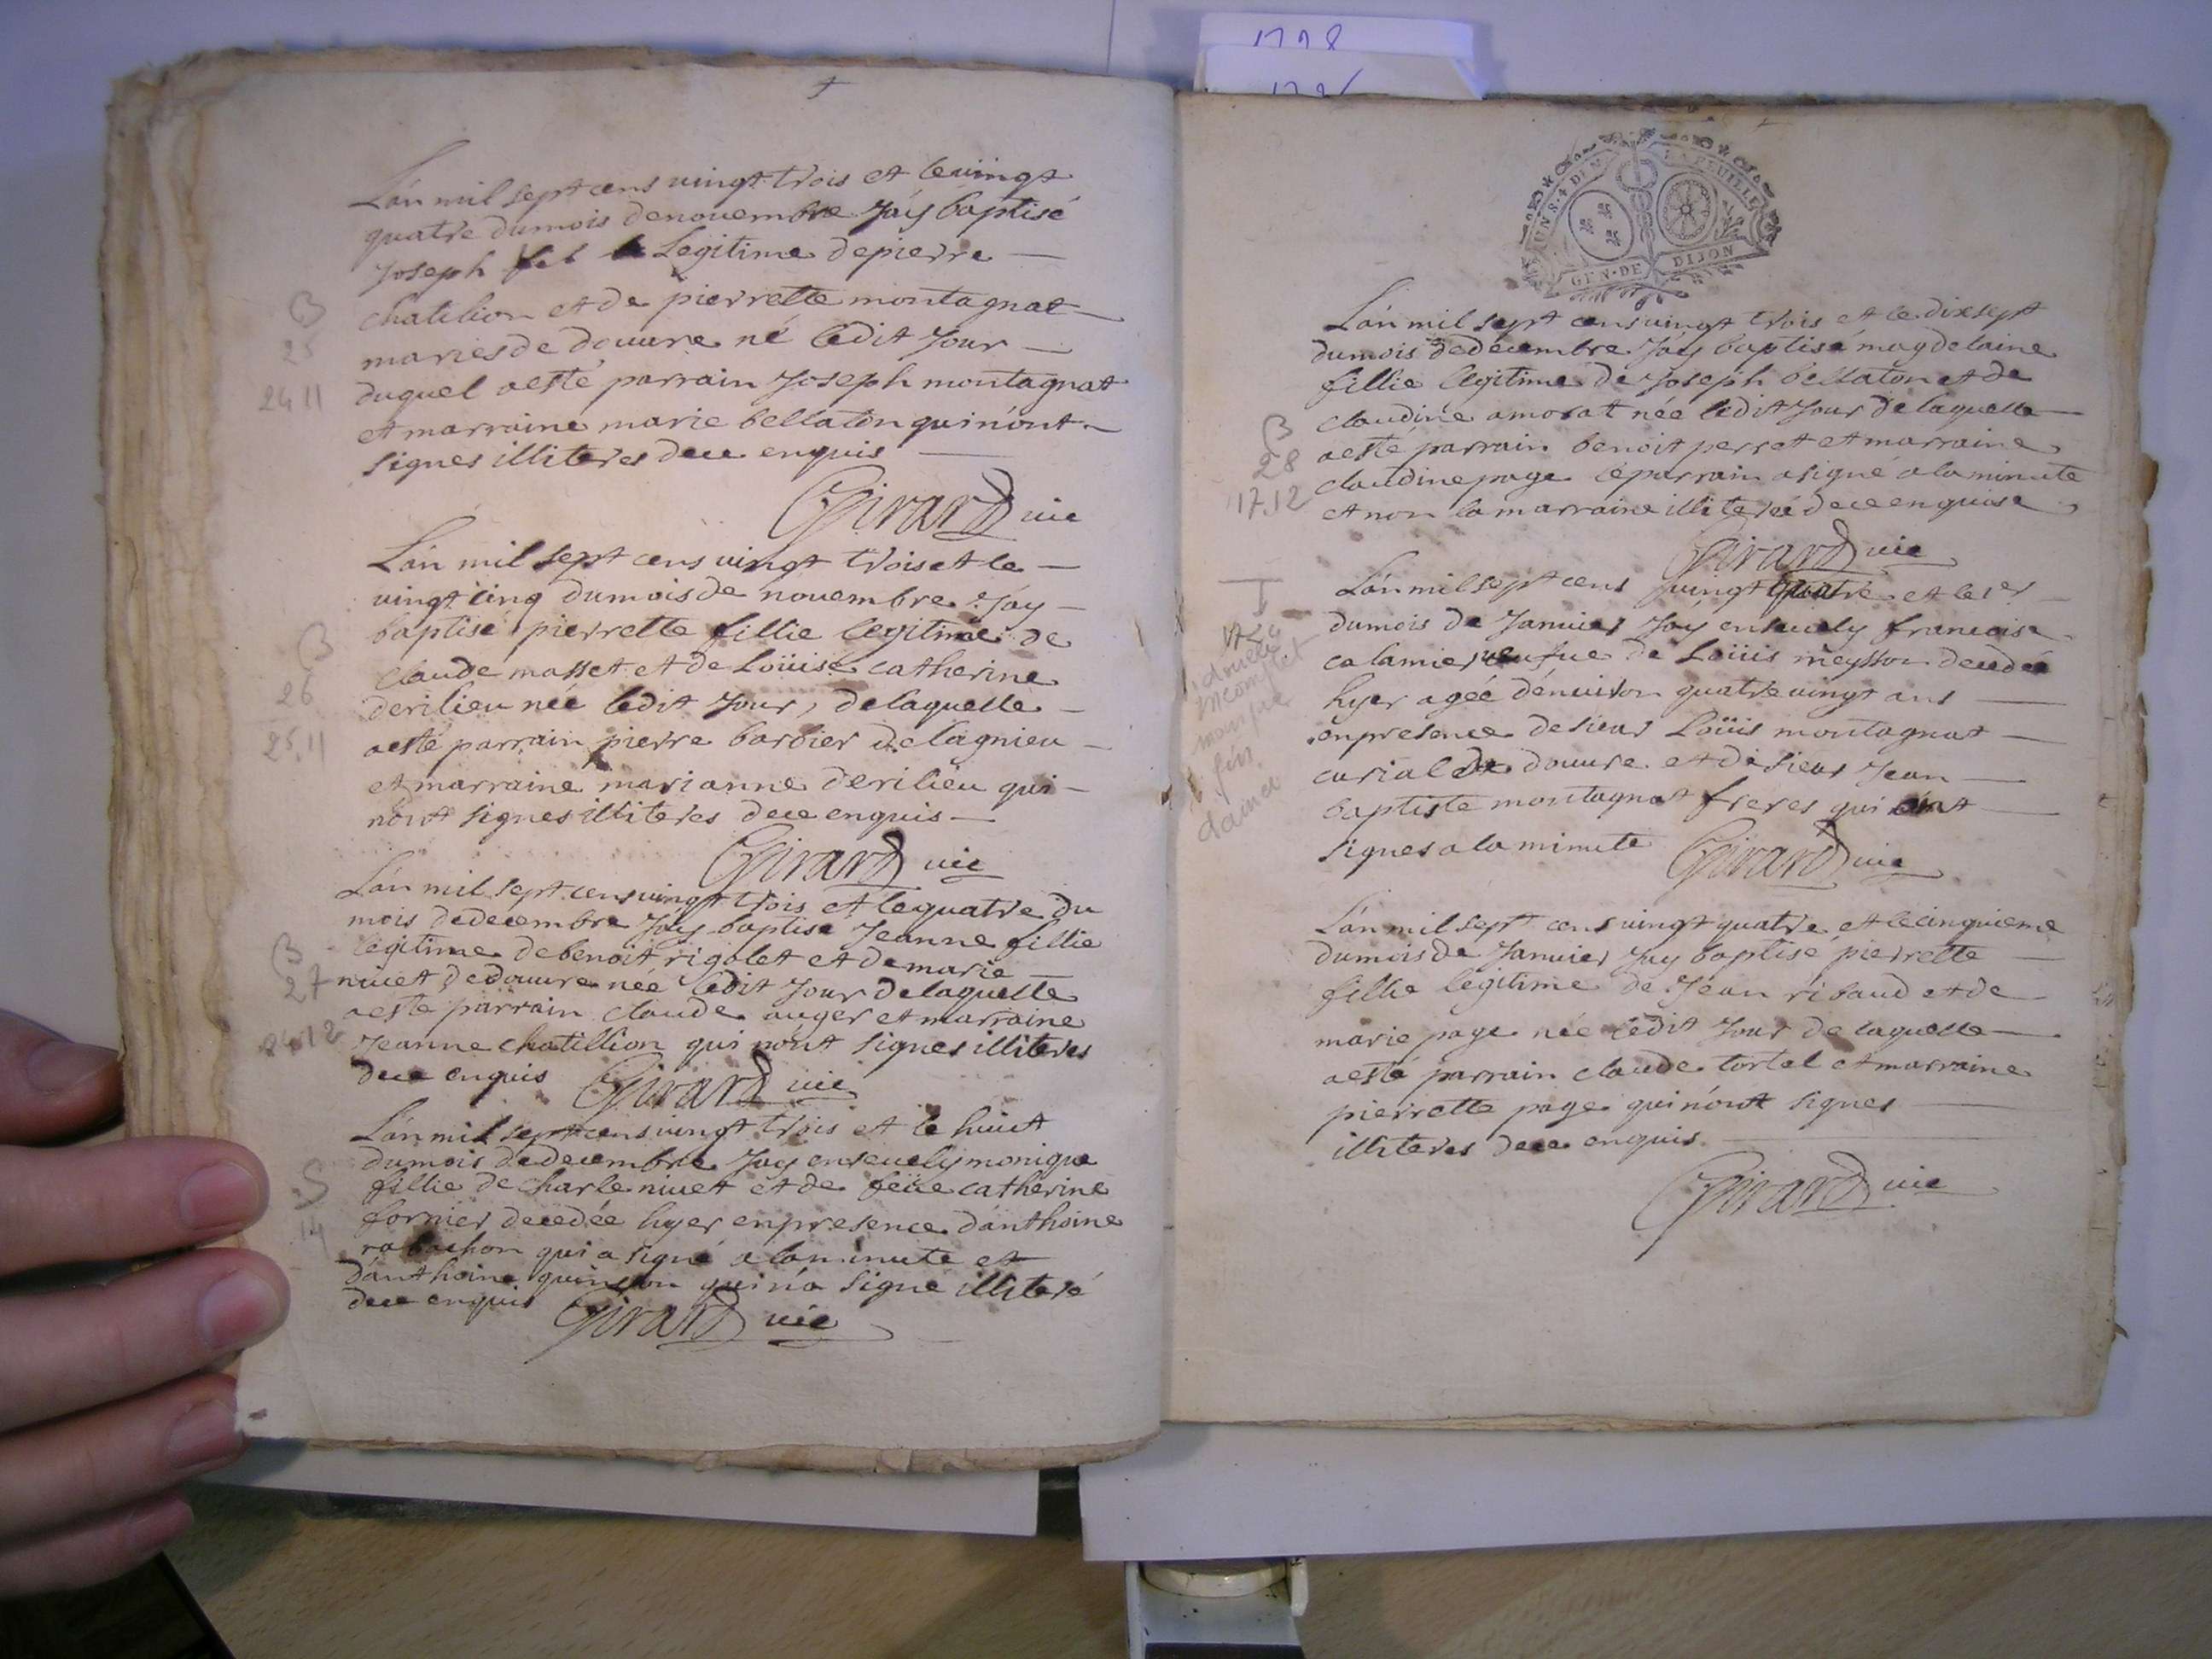 Lán mil sept cens vingt trois et le vingt
quatre du mois de novembre Jáy baptisé
Joseph fils Legitime de pierre
chatilion et de pierrette montagnat
maries de douvre né ledit Jour
duquel a esté parrain Joseph montagnat
et marraine marie bellaton qui n'ont
signes illiteres de ce enquis
Girard vic
Lán mil sept cens vingt trois et le
vingt cinq du mois de novembre Jáy
baptisé pierrette fillie legitime de
claude masset et de Loüise catherine
derilieu née ledit Jour, de laquelle
a esté parrain pierre barbier de lagnieu
et marraine marianne derilieu qui
n'ont signes illiteres de ce enquis
Girard vic
Lán mil sept cens vingt trois et le quatre du
mois de decembre Jáy baptisé Jeanne fillie
legitime de benoit rigolet et de marie
nivet de douvre née ledit Jour de laquelle
a esté parrain claude auger et marraine
Jeanne chatillion qui n'ont signes illiteres
de ce enquis Girard vic
Lán mil sept cens vingt trois et le huict
du mois de decembre Jáy ensevely monique
fillie de charle nivet et de feüe catherine
fornier decedée hyer en presence d'anthoine
qui a signé a la minute et
d'anthoine quinson qui n'a signé illiteré
de ce enquis Girard vic
B
25
24 11
B
26
25.11
B
27
04.12
S
14
1728
GEN·DE DIJON
Lán mil sept cens vingt trois et le dix sept
du mois de decembre Jáy baptisé magdelaine
fillie legitime de Joseph bellaton et de
claudine amorat née ledit Jour de laquelle
a esté parrain benoit perret et marraine
claudine page le parrain a signé a la minute
et non la marraine illiteré de ce enquise
Girard vic
Lán mil sept cens vingt quatre et le 1er
du mois de Janvier Jáy ensevely francoise
calamier veufue de Loüis meysson decedée
hyer agée d'environ quatre vingt ans
en presence de sieur Loüis montagnat
curial de douvre et de sieur Jean
baptiste montagnat freres qui ont
signes a la minute Girard vic
Lán mil sept cens vingt quatre et le cinquieme
du mois de Janvier Jáy baptisé pierrette
fillie legitime de Jean ribaud et de
marie page née ledit Jour de laquelle
a esté parrain claude tortel et marraine
pierrette page qui n'ont signes
illiteres de ce enquis
Girard vic
B
28
17.12
1724
année
incomplet
manque
fin